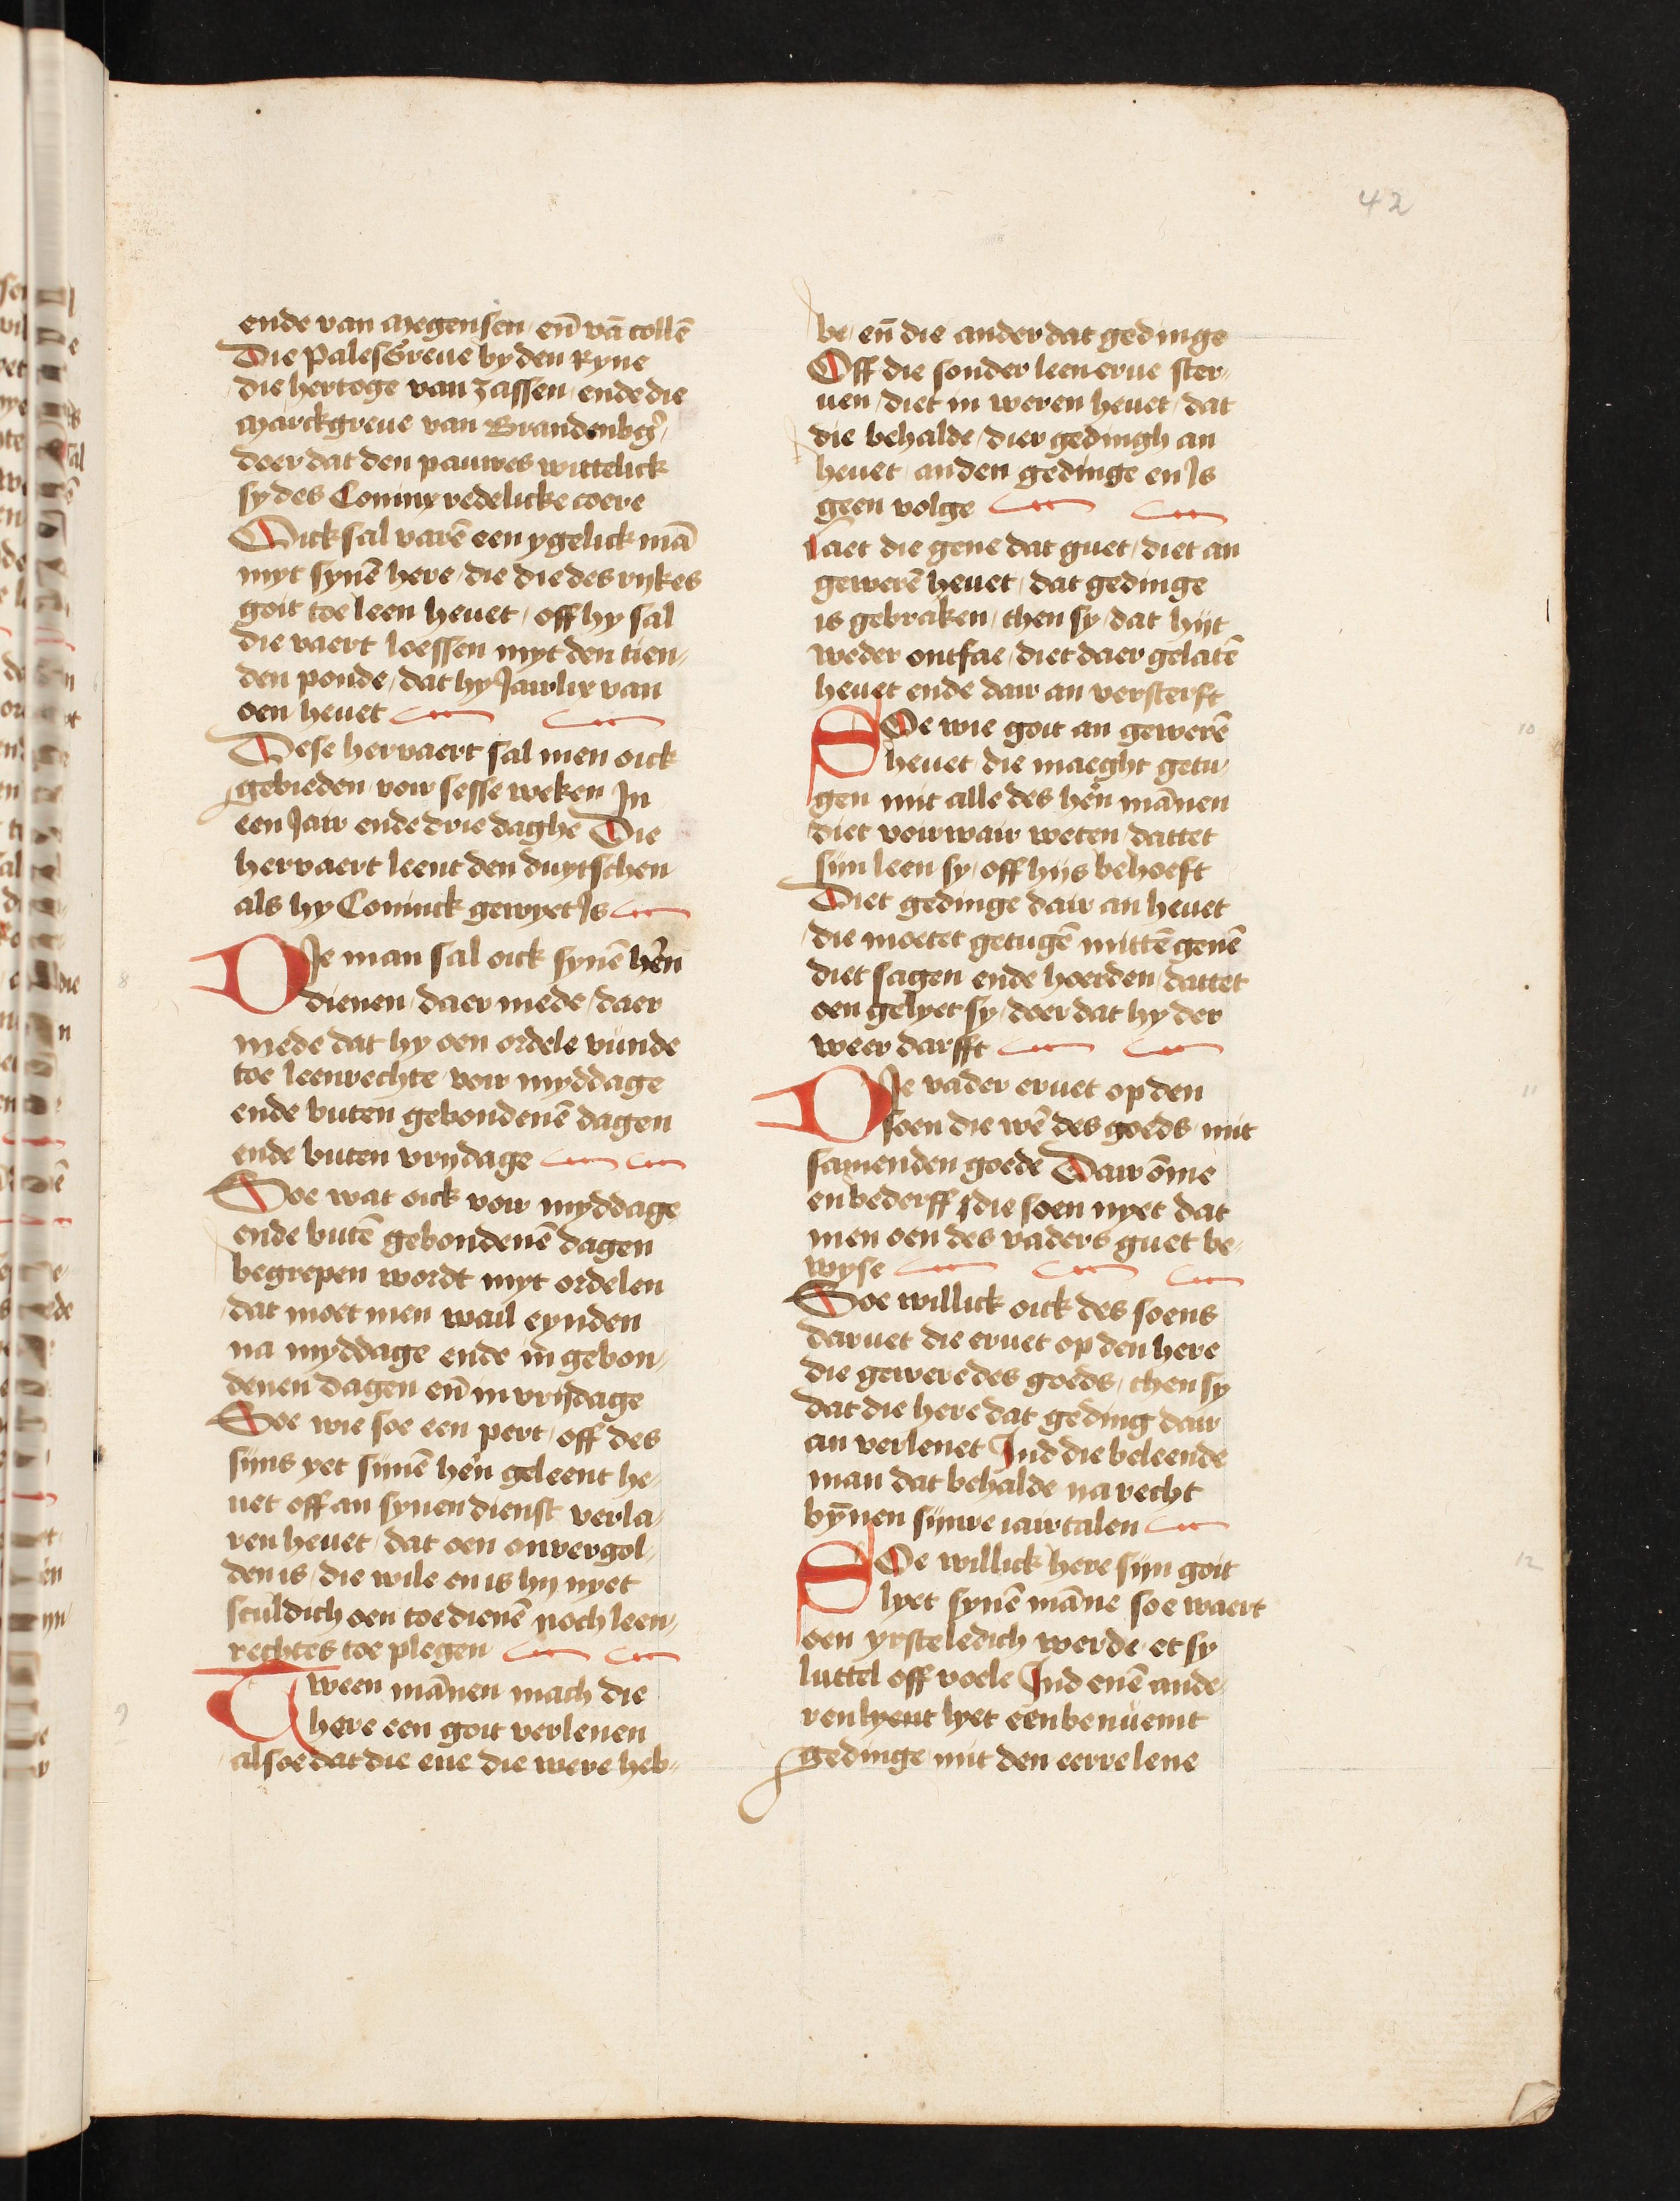 42
ende van Megensen en̄ vā collē
Die PalesGreue by den Ryne
die hertoge van zassen ende die
Marckgreue van Brandenbg̃
doer dat den pauwes wittelick
sy des Coninx redelicke coere
Oick sal varē een ygelick mā
myt synē here die die des rykes
goit toe leen heuet off hy sal
die vaert loessen myt den tien-
den ponde dat hy Jairlix van
oen heuet
Dese hervaert sal men oick
gebieden voir sesse weken In
een Jair ende drie daghe Die
hervaert leent den duytschen
als hy Coninck gewyet Is
8
DIe man sal oick synē hēn
dienen daer mede daer
mede dat hy oen ordele vunde
toe leenrechte voir myddage
ende buten gebondenē dagen
ende buten vrydage
Soe wat oick voir myddage
ende butē gebondenē dagen
begrepen wordt myt ordelen
dat moet men wail eynden
na myddage ende in gebon-
denen dagen en̄ in vrydage
Soe wie soe een pert off des
sijns yet sijnē hēn geleent he-
uet off an synen dienst verla-
ren heuet dat oen onvergol-
den is die wile en is hij nyet
sculdich oen toe dienē noch leen-
rechtes toe plegen
9
Tween mānen mach die
here een goit verlenen
alsoe dat die ene die were heb-
be en̄ die ander dat gedinge
Off die sonder leen erue ster-
uen diet in weren heuet dat
die behalde dier gedingh an
heuet an den gedinge en Is
geen volge
Laet die gene dat guet diet an
gewerē heuet dat gedinge
is gebraken then sy dat hijt
weder ontfae diet daer gelatē
heuet ende dair an versterft
10
SOe wie goit an gewerē
heuet die maeght getu-
gen mit alle des hēn mānen
diet voirwair weten dattet
sijn leen sy off hijs behoeft
Diet gedinge dair an heuet
die moetet getugē mittē genē
diet sagen ende hoerden dattet
oen gelyet sy doer dat hy der
weer darfft
11
DIe vader eruet op den
soen die wē des goeds mit
samenden goede Dair ōme
en bederff die soen nyet dat
men oen des vaders guet be-
wyse
Soe willick oick des soens
daruet die eruet op den here
die gewere des goeds then sy
dat die here dat geding dair
an verlenet Ind die beleende
man dat behalde na recht
by̅nen sijnre iairtalen
12
SOe willick here sijn goit
lyet synē māne soe waert
oen yrste ledich werde et sy
luttel off voele Ind enē ande-
ren lyent lyet een benuemt
gedinge mit den eerre lene